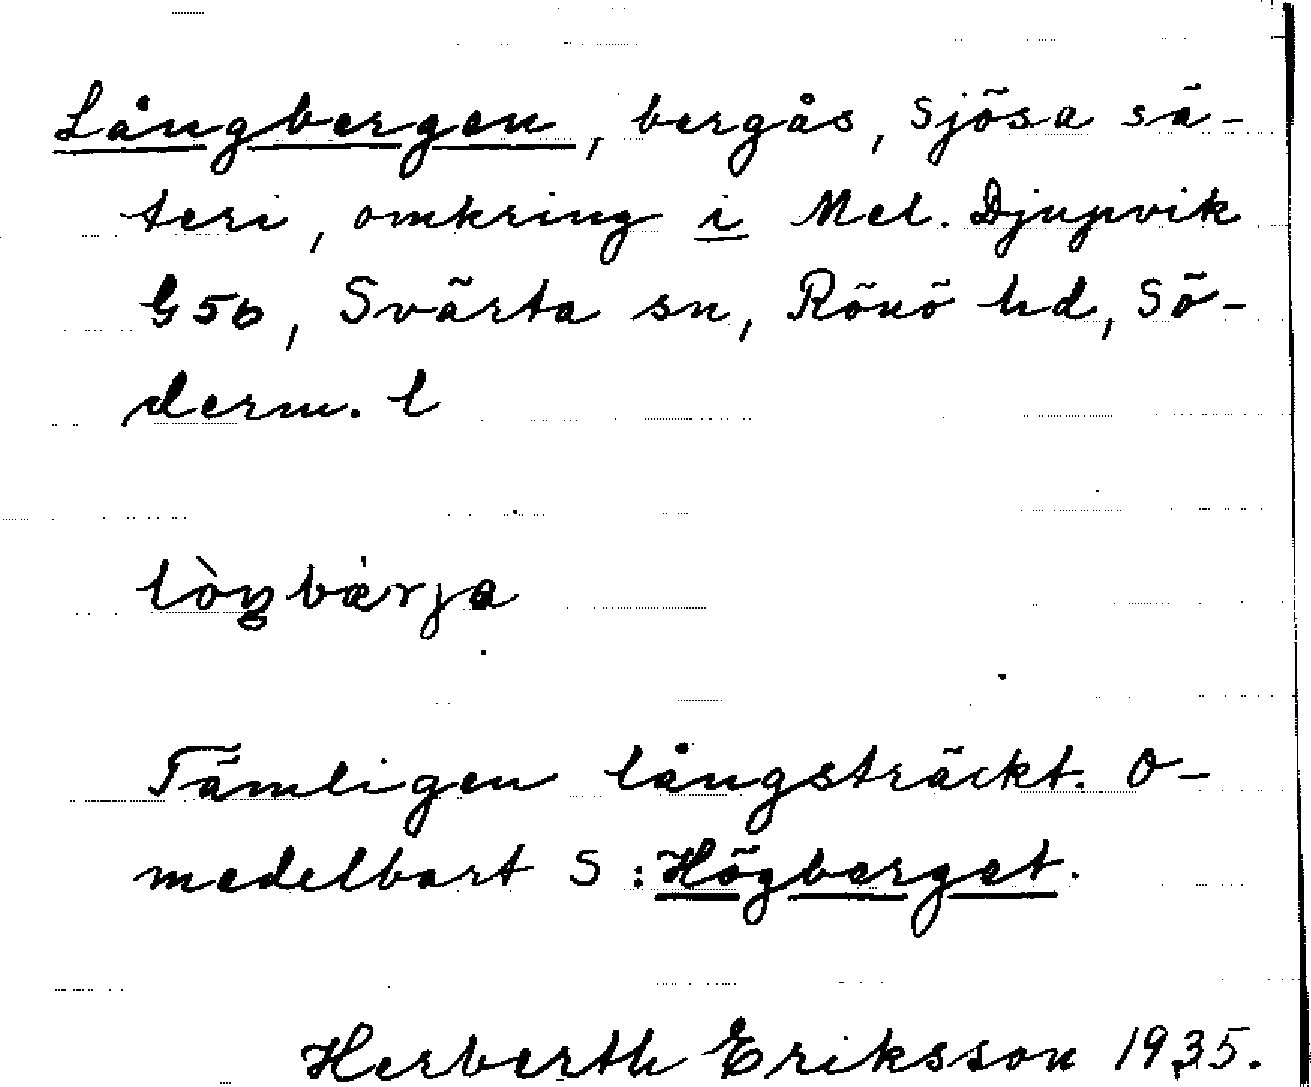 Långbergen, bergås, Sjösa sä-
teri, omkring i Mel. Djupvik
G5b, Svärta sn, Rönö hd, Sö-
derm. l
lòŋbæ̀rja
Tämligen långsträckt. O-
medelbart S : Högberget.
Herberth Eriksson 1935.